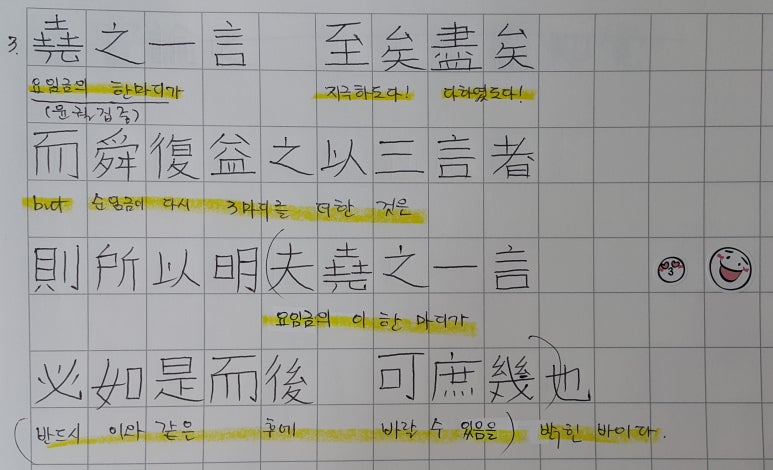 3. 堯之一言 至矣盡矣
요임금의 한마디가 지극하도다! 다하였도다!
(윤집궐중)
而舜復益之以三言者
but 순임금이 다시 3마디를 더한 것은
則所以明(夫堯之一言
요임금의 이 한 마디가
必如是而後 可庶幾)也
(반드시 이와 같은 후에 바랄 수 있음을) 밝힌 바이다.